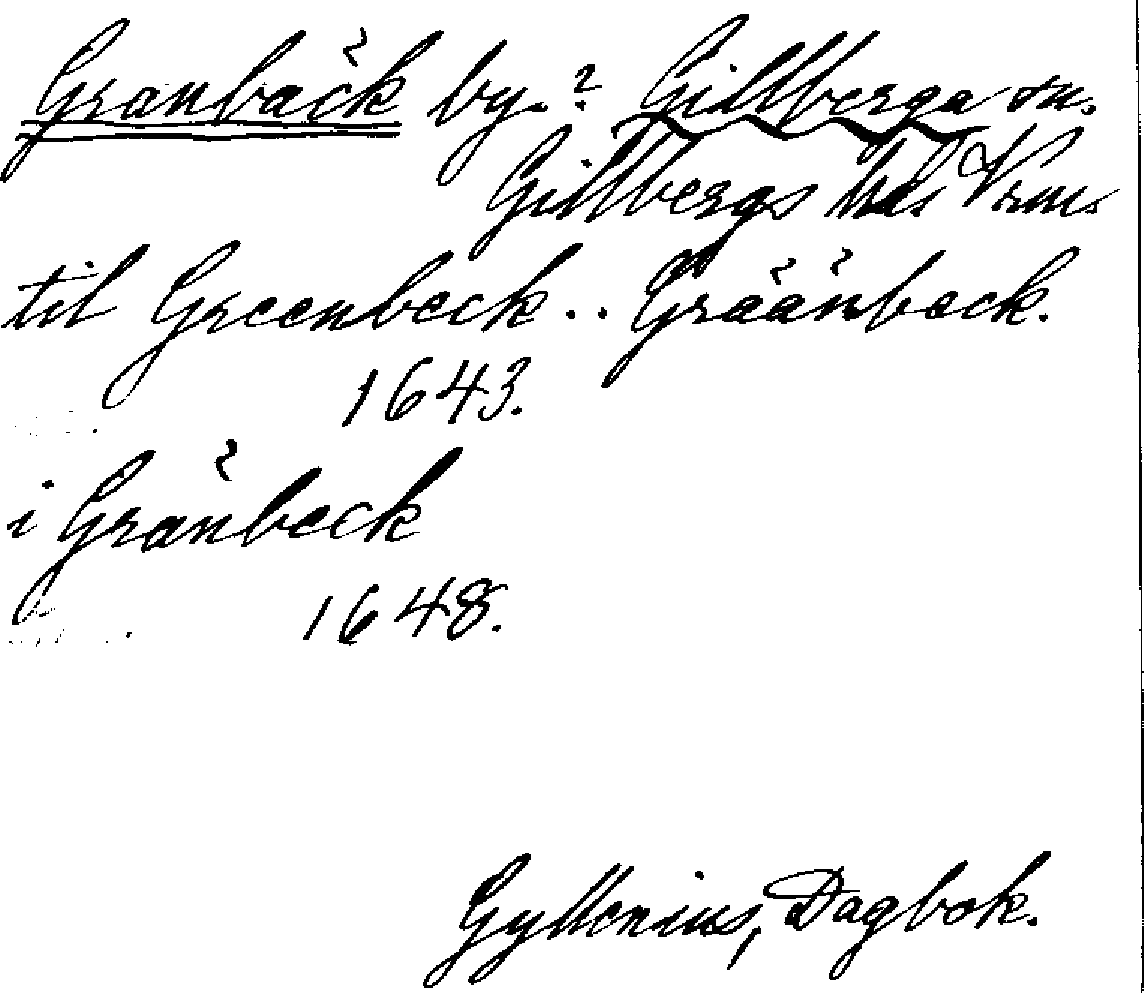 Granbäck by.? Gillberga sn.
Gillbergs hds Vrm.
til Greenbeck .. Gräänbeck.
1643.
i Gränbeck
1648.
Gyllenius, Dagbok.